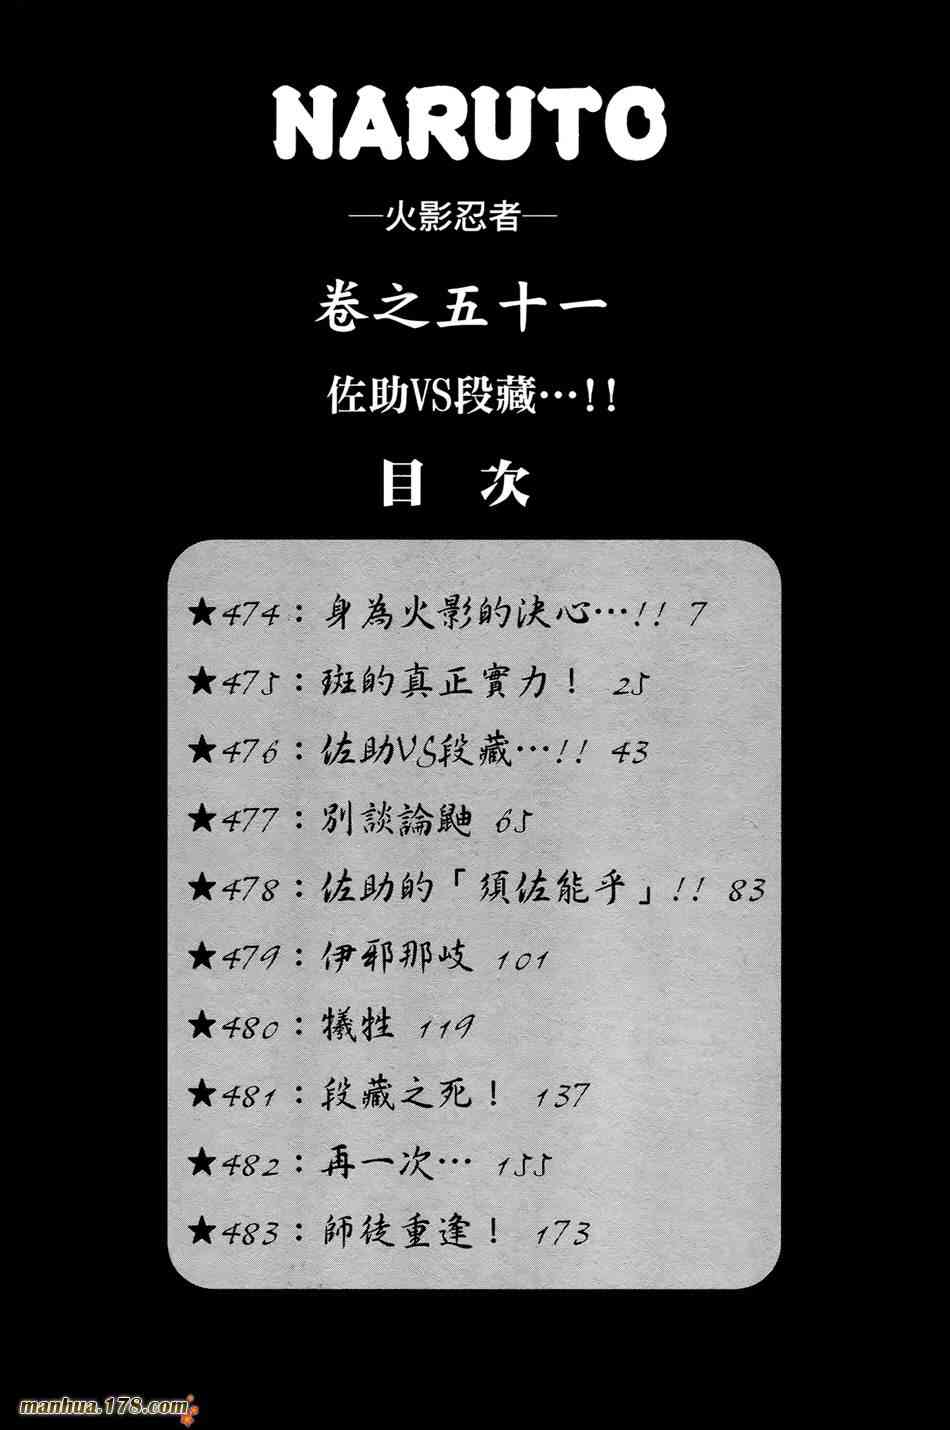 NARUTO
—火影忍者—
卷之五十一
佐助VS段藏…!!
目 次
★474：身為火影的決心…!! 7
★475：斑的真正實力！ 25
★476：佐助VS段藏…!! 43
★477：別談論鼬 65
★478：佐助的「須佐能乎」!! 83
★479：伊邪那岐 101
★480：犧牲 119
★481：段藏之死！ 137
★482：再一次… 155
★483：師徒重逢！ 173
manhua.178.com